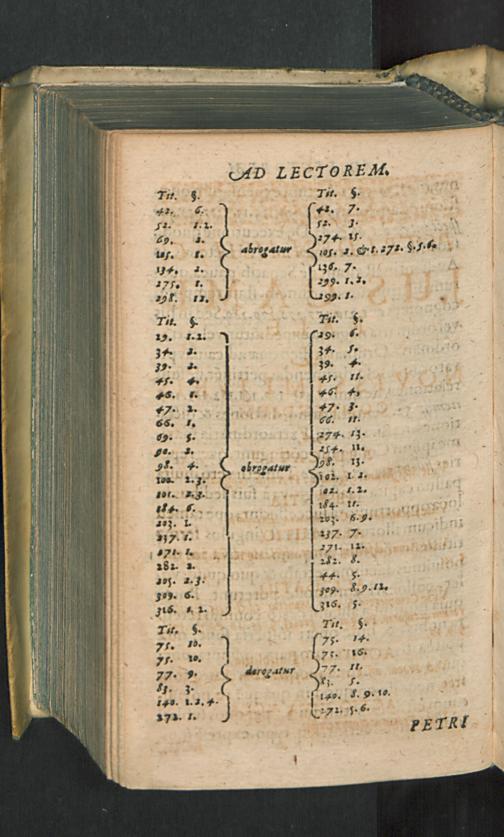 AD LECTOREM.
Tit. §. Tit. §.
42. 6. 42. 7.
52. 1.2. 52. 3.
69. 2. 274. 15.
105. 1. abrogatur 105. 2. & t. 272. §. 5.6.
134. 2. 136. 7.
275. 1. 299. 1.2.
298. 12. 299. 1.
Tit. §. Tit. §.
29. 1.2. 29. 6.
34. 2. 34. 5.
39. 2. 39. 4.
45. 4. 45. 11.
46. 1. 46. 4.
47. 2. 47. 3.
66. 1. 66. 11.
69. 5. 274. 13.
90. 2. 254. 12.
98. 4. obrogatur 98. 13.
100. 2.3. 102. 1.2.
101. 2.3. 102. 1.2.
184. 6. 184. 11.
203. 1. 203. 6.9.
237. 1. 237. 7.
271. 1. 271. 12.
282. 2. 282. 8.
205. 2.3. 44. 5.
309. 6. 309. 8.9.12.
316. 1.2. 316. 5.
Tit. §. Tit. §.
75. 10. 75. 14.
75. 10. 75. 16.
77. 9. derogatur 77. 11.
83. 3. 83. 5.
140. 1.2.4. 140. 8.9.10.
272. 1. 272. 5.6.
PETRI